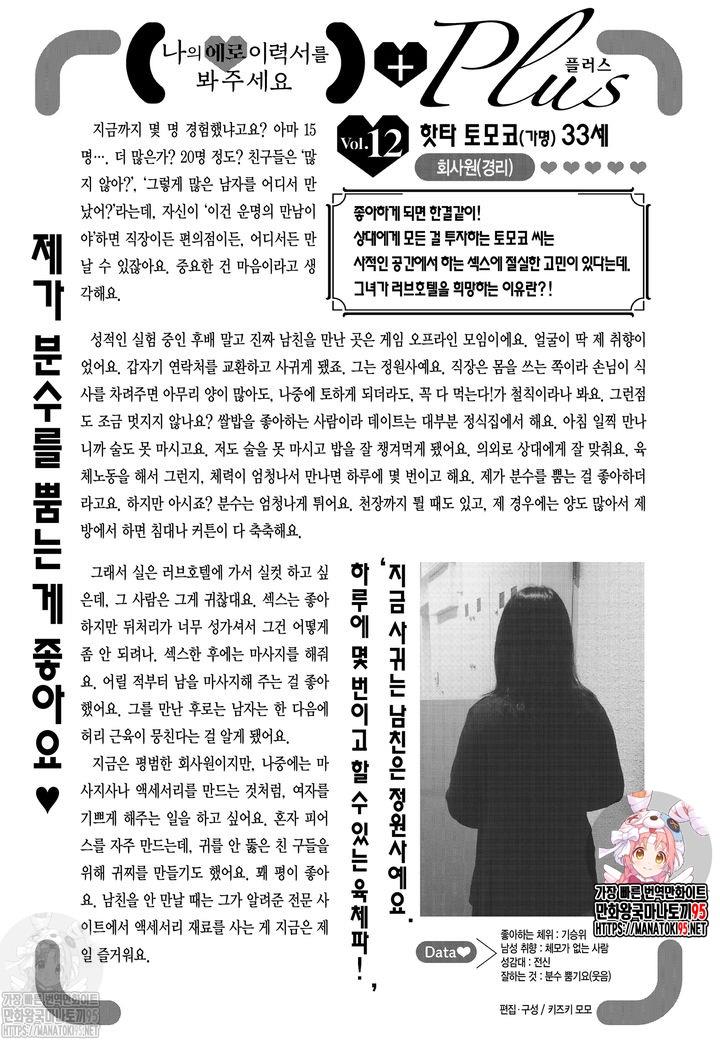 나의 에로 이력서를
봐주세요
+
Plus
플러스
Vol.12
핫타 토모코(가명) 33세
회사원(경리)
좋아하게 되면 한결같이!
상대에게 모든 걸 투자하는 토모코 씨는
사적인 공간에서 하는 섹스에 절실한 고민이 있다는데.
그녀가 러브호텔을 희망하는 이유란?!
제가 분수를 뿜는 게 좋아요♥
지금까지 몇 명 경험했냐고요? 아마 15
명…. 더 많은가? 20명 정도? 친구들은 '많
지 않아?', '그렇게 많은 남자를 어디서 만
났어?'라는데, 자신이 '이건 운명의 만남이
야'하면 직장이든 편의점이든, 어디서든 만
날 수 있잖아요. 중요한 건 마음이라고 생
각해요.
성적인 실험 중인 후배 말고 진짜 남친을 만난 곳은 게임 오프라인 모임이에요. 얼굴이 딱 제 취향이
었어요. 갑자기 연락처를 교환하고 사귀게 됐죠. 그는 정원사예요. 직장은 몸을 쓰는 쪽이라 손님이 식
사를 차려주면 아무리 양이 많아도, 나중에 토하게 되더라도, 꼭 다 먹는다!가 철칙이라나 봐요. 그런점
도 조금 멋지지 않나요? 쌀밥을 좋아하는 사람이라 데이트는 대부분 정식집에서 해요. 아침 일찍 만나
니까 술도 못 마시고요. 저도 술을 못 마시고 밥을 잘 챙겨먹게 됐어요. 의외로 상대에게 잘 맞춰요. 육
체노동을 해서 그런지, 체력이 엄청나서 만나면 하루에 몇 번이고 해요. 제가 분수를 뿜는 걸 좋아하더
라고요. 하지만 아시죠? 분수는 엄청나게 튀어요. 천장까지 튈 때도 있고, 제 경우에는 양도 많아서 제
방에서 하면 침대나 커튼이 다 축축해요.
그래서 실은 러브호텔에 가서 실컷 하고 싶
은데, 그 사람은 그게 귀찮대요. 섹스는 좋아
하지만 뒤처리가 너무 성가셔서 그건 어떻게
좀 안 되려나. 섹스한 후에는 마사지를 해줘
요. 어릴 적부터 남을 마사지해 주는 걸 좋아
했어요. 그를 만난 후로는 남자는 한 다음에
허리 근육이 뭉친다는 걸 알게 됐어요.
지금은 평범한 회사원이지만, 나중에는 마
사지사나 액세서리를 만드는 것처럼, 여자를
기쁘게 해주는 일을 하고 싶어요. 혼자 피어
스를 자주 만드는데, 귀를 안 뚫은 친 구들을
위해 귀찌를 만들기도 했어요. 꽤 평이 좋아
요. 남친을 안 만날 때는 그가 알려준 전문 사
이트에서 액세서리 재료를 사는 게 지금은 제
일 즐거워요.
'지금 사귀는 남친은 정원사예요.
하루에 몇 번이고 할 수 있는 육체파!'
Data♥
좋아하는 체위 : 기승위
남성 취향 : 체모가 없는 사람
성감대 : 전신
잘하는 것 : 분수 뿜기요(웃음)
편집·구성 / 키즈키 모모
가장 빠른 번역만화이트
만화왕국마나토끼95
HTTPS://MANATOKI95.NET
가장 빠른 번역만화이트
만화왕국마나토끼95
HTTPS://MANATOKI95.NET